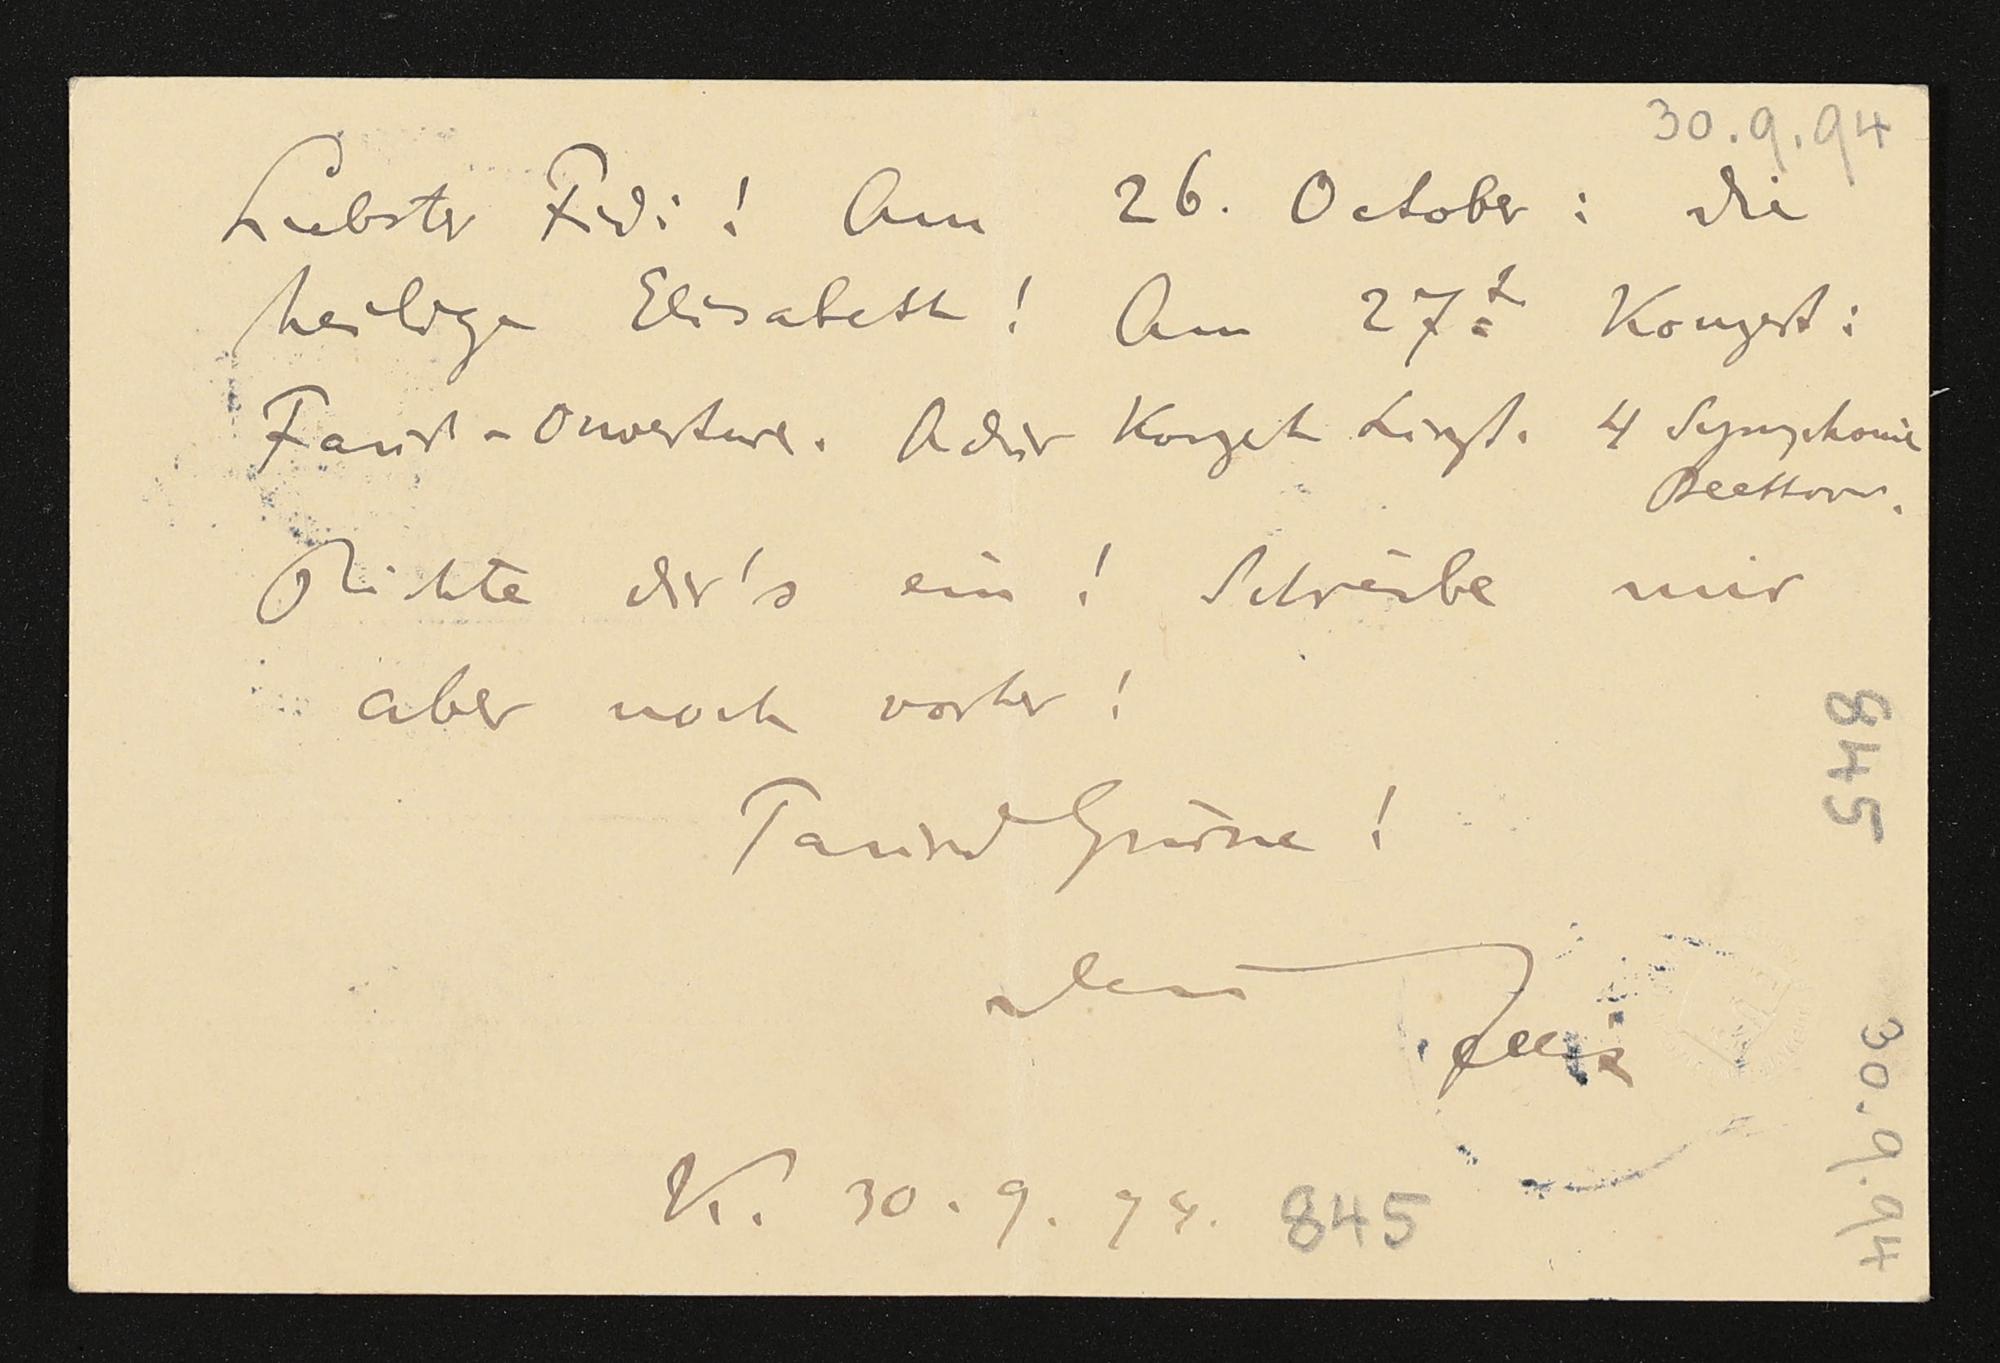 30.9.94
Liebster Fidi! Am 26. October: die
heilige Elisabeth! Am 27t Konzert:
Faust-Ouverture. Adur Konzert Liszt. 4 Symphonie
Beethoven.
Richte dir's ein! Schreibe mir
aber noch vorher!
Tausend Grüsse!
dein
Felix
K. 30.9.94. 845
845
30.9.94